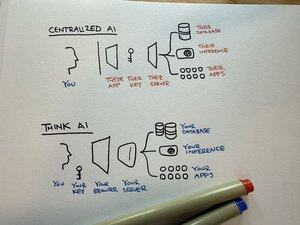 CENTRALIZED AI
THEIR
DATABASE
THEIR
INFERENCE
YOU
THEIR
APP
THEIR
KEY
THEIR
SERVER
THEIR
APPS
THINK AI
YOUR
DATABASE
YOUR
INFERENCE
YOU
YOUR
KEY
YOUR
BROWSER
YOUR
SERVER
YOUR
APPS